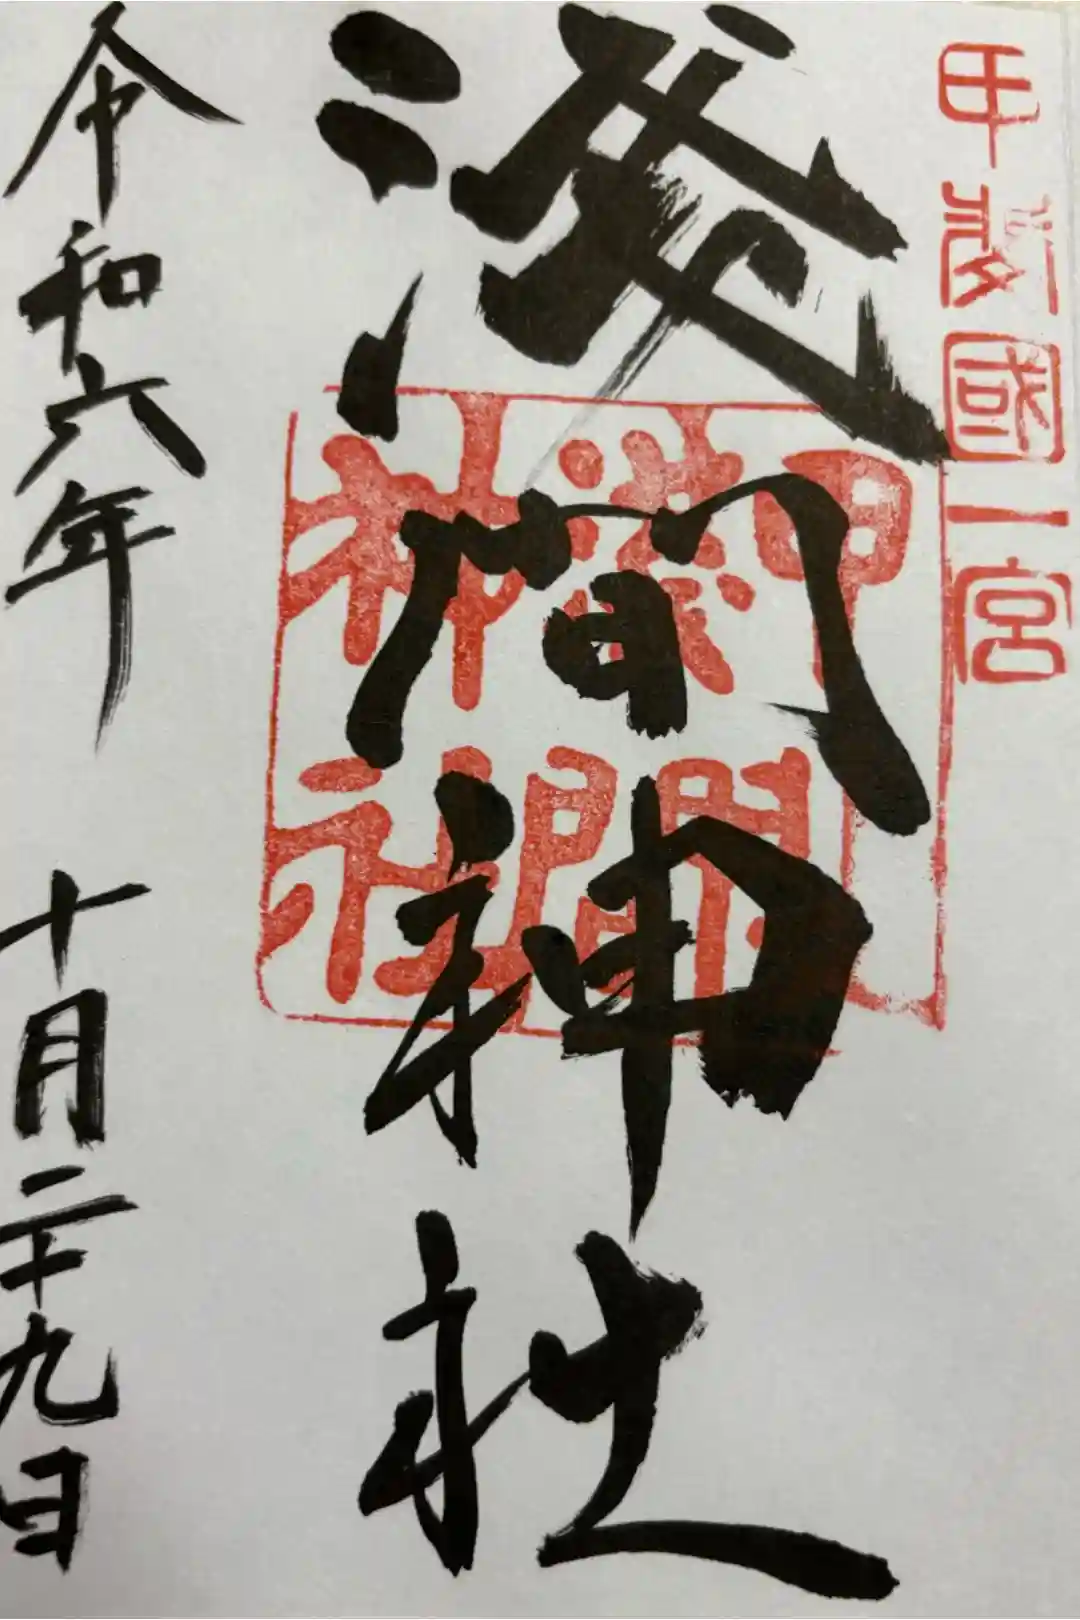 甲斐國一宮
淺間神社
令和六年 十月二十九日